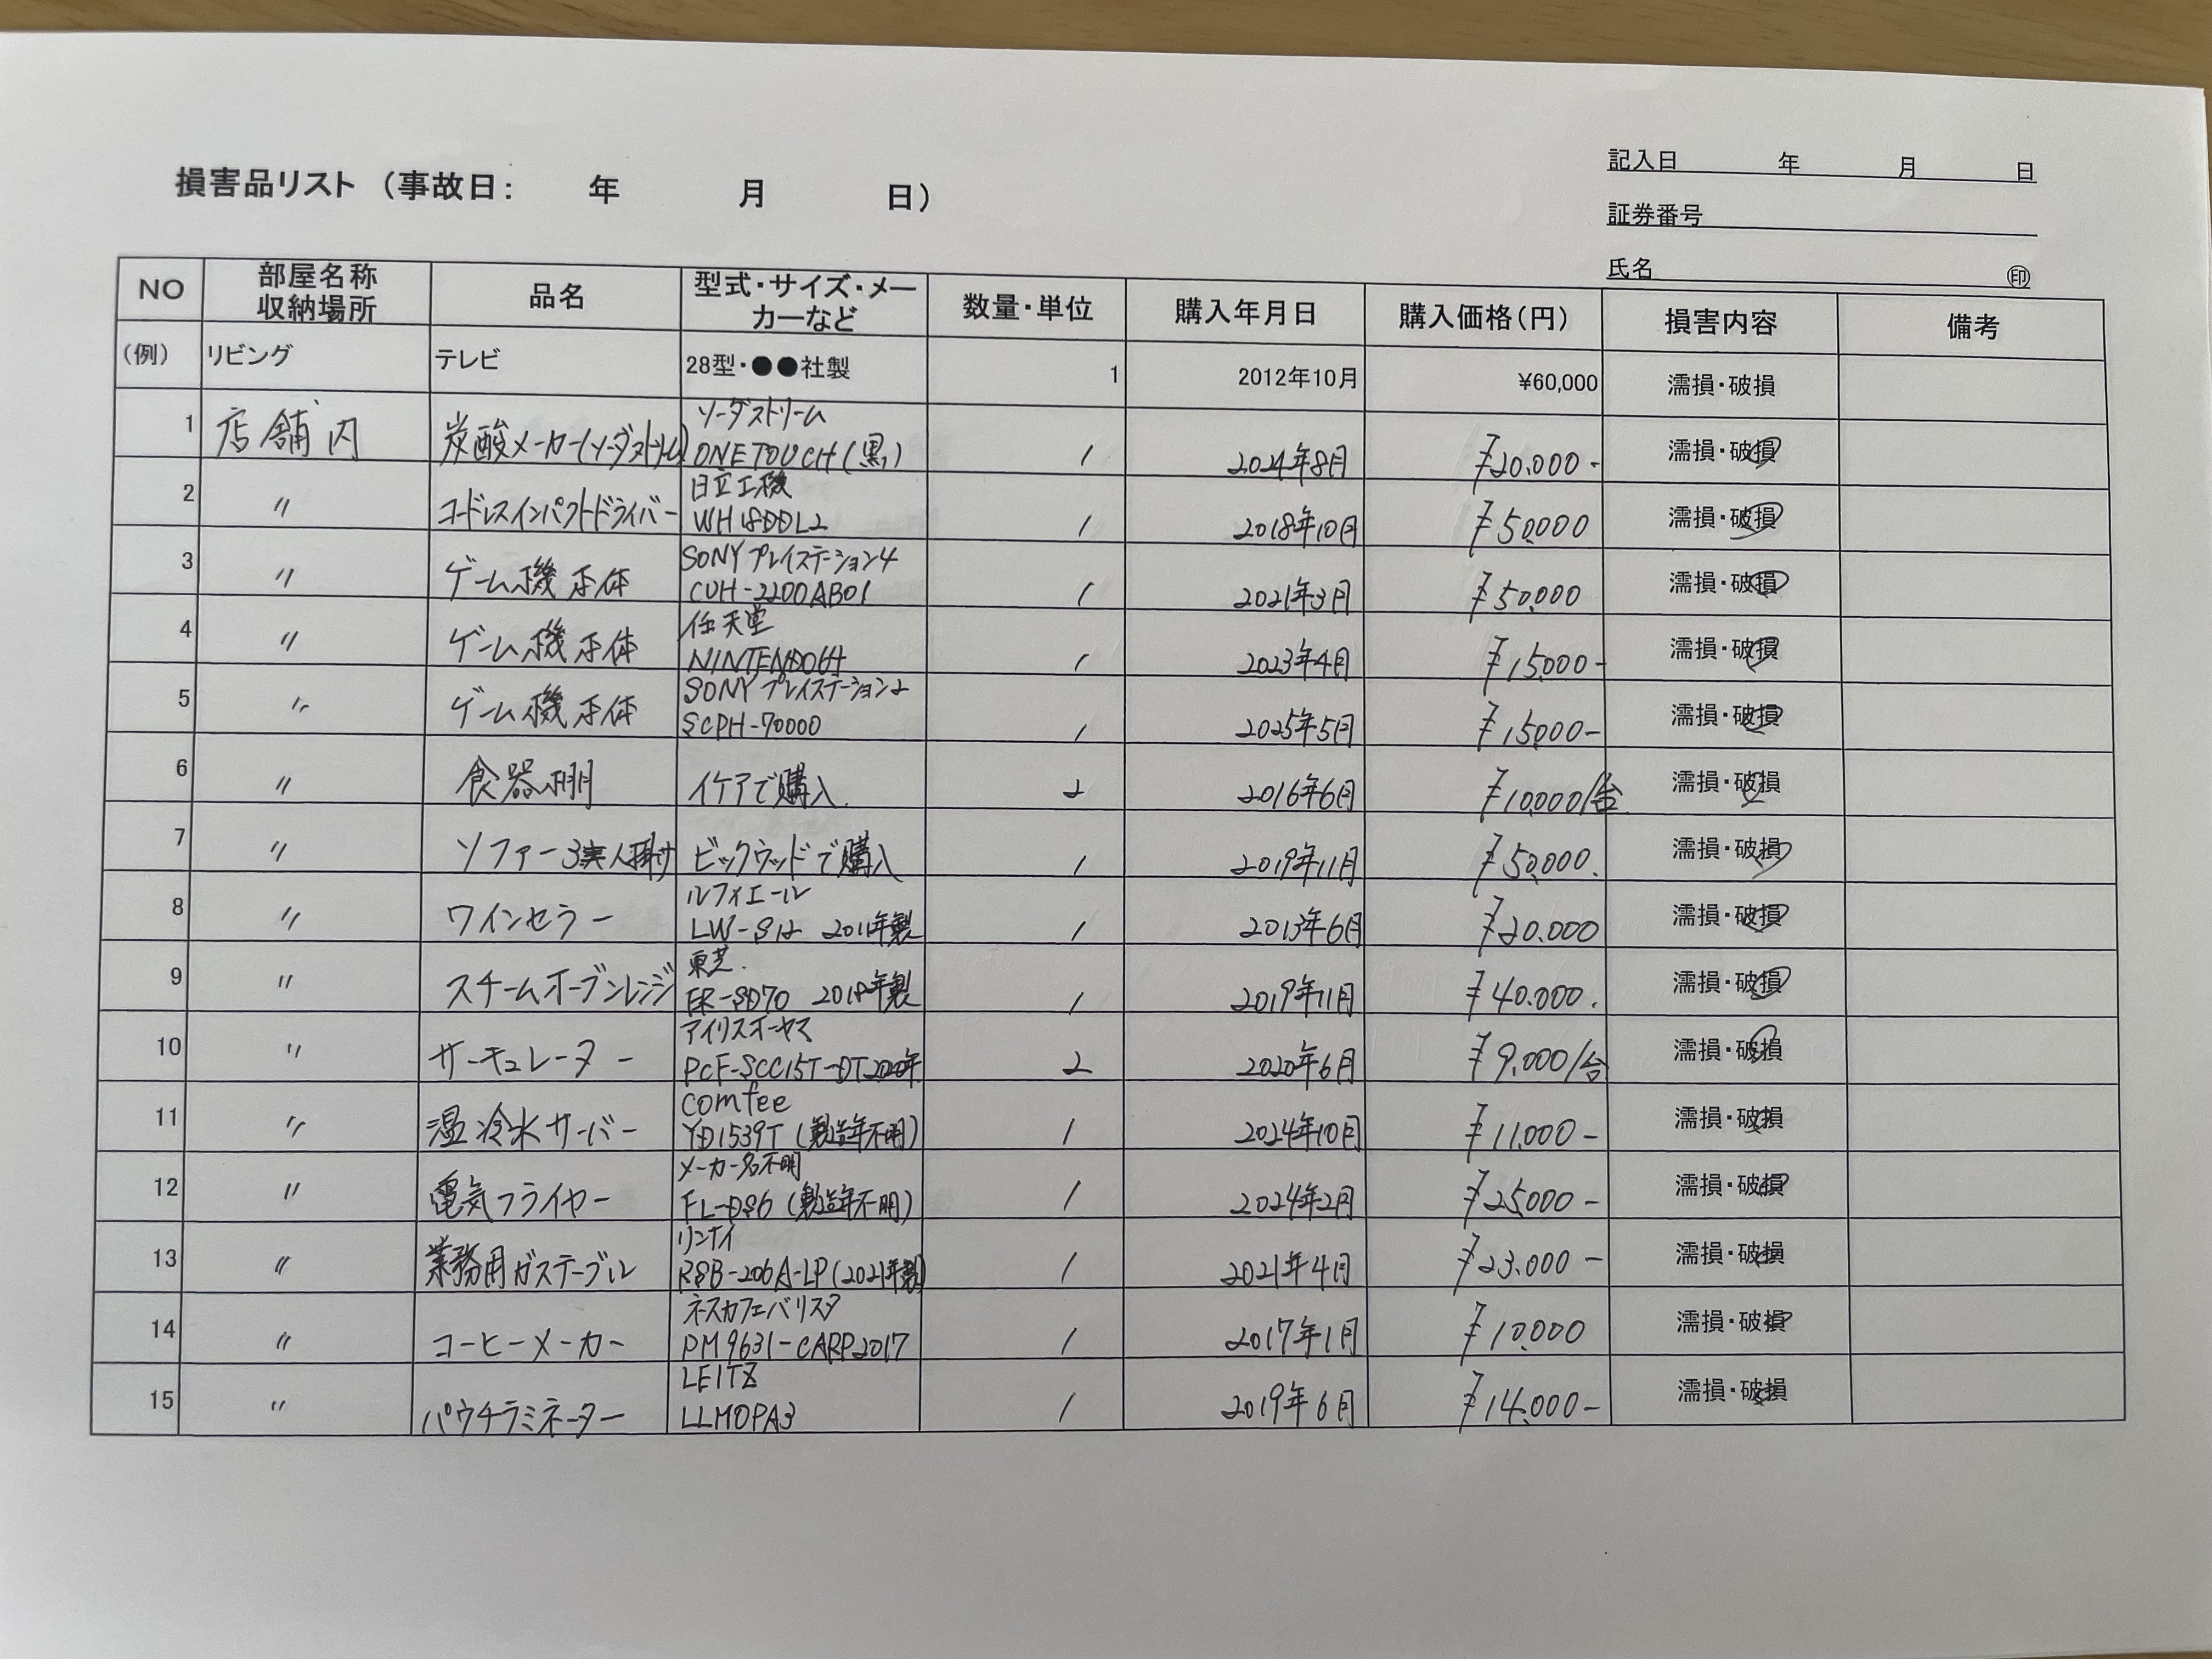 記入日 年 月 日
損害品リスト （事故日： 年 月 日）
証券番号
氏名 ㊞
NO 部屋名称 収納場所 品名 型式・サイズ・メーカーなど 数量・単位 購入年月日 購入価格（円） 損害内容 備考
（例） リビング テレビ 28型・●●社製 1 2012年10月 ¥60,000 濡損・破損
1 店舗内 炭酸メーカー(ソーダストリーム) ソーダストリーム
ONE TOUCH (黒) 1 2024年8月 ¥20.000- 濡損・破損
2 〃 コードレスインパクトドライバー 日立工機
WH18DDL2 1 2018年10月 ¥50000 濡損・破損
3 〃 ゲーム機本体 SONY プレイステーション4
CUH-2200AB01 1 2021年3月 ¥50.000 濡損・破損
4 〃 ゲーム機本体 任天堂
NINTENDO64 1 2023年4月 ¥15.000- 濡損・破損
5 〃 ゲーム機本体 SONY プレイステーション2
SCPH-70000 1 2025年5月 ¥15000- 濡損・破損
6 〃 食器棚 イケアで購入. 2 2016年6月 ¥10.000/台 濡損・破損
7 〃 ソファー3人掛け ビックウッドで購入 1 2019年11月 ¥50.000. 濡損・破損
8 〃 ワインセラー ルフィエール
LW-S12 2011年製 1 2013年6月 ¥20.000 濡損・破損
9 〃 スチームオーブンレンジ 東芝.
ER-SD70 2018年製 1 2019年11月 ¥40.000. 濡損・破損
10 〃 サーキュレーター アイリスオーヤマ
PCF-SCC15T-DT2020年 2 2020年6月 ¥9.000/台 濡損・破損
11 〃 温冷水サーバー comfee
YD1539T (製造年不明) 1 2024年10月 ¥11.000- 濡損・破損
12 〃 電気フライヤー メーカー名不明
FL-DS6 (製造年不明) 1 2024年2月 ¥25.000- 濡損・破損
13 〃 業務用ガステーブル リンナイ
RSB-206A-LP (2021年製) 1 2021年4月 ¥23.000- 濡損・破損
14 〃 コーヒーメーカー ネスカフェバリスタ
PM9631-CARP2017 1 2017年1月 ¥10.000 濡損・破損
15 〃 パウチラミネーター LEITZ
LLM0PA3 1 2019年6月 ¥14.000- 濡損・破損